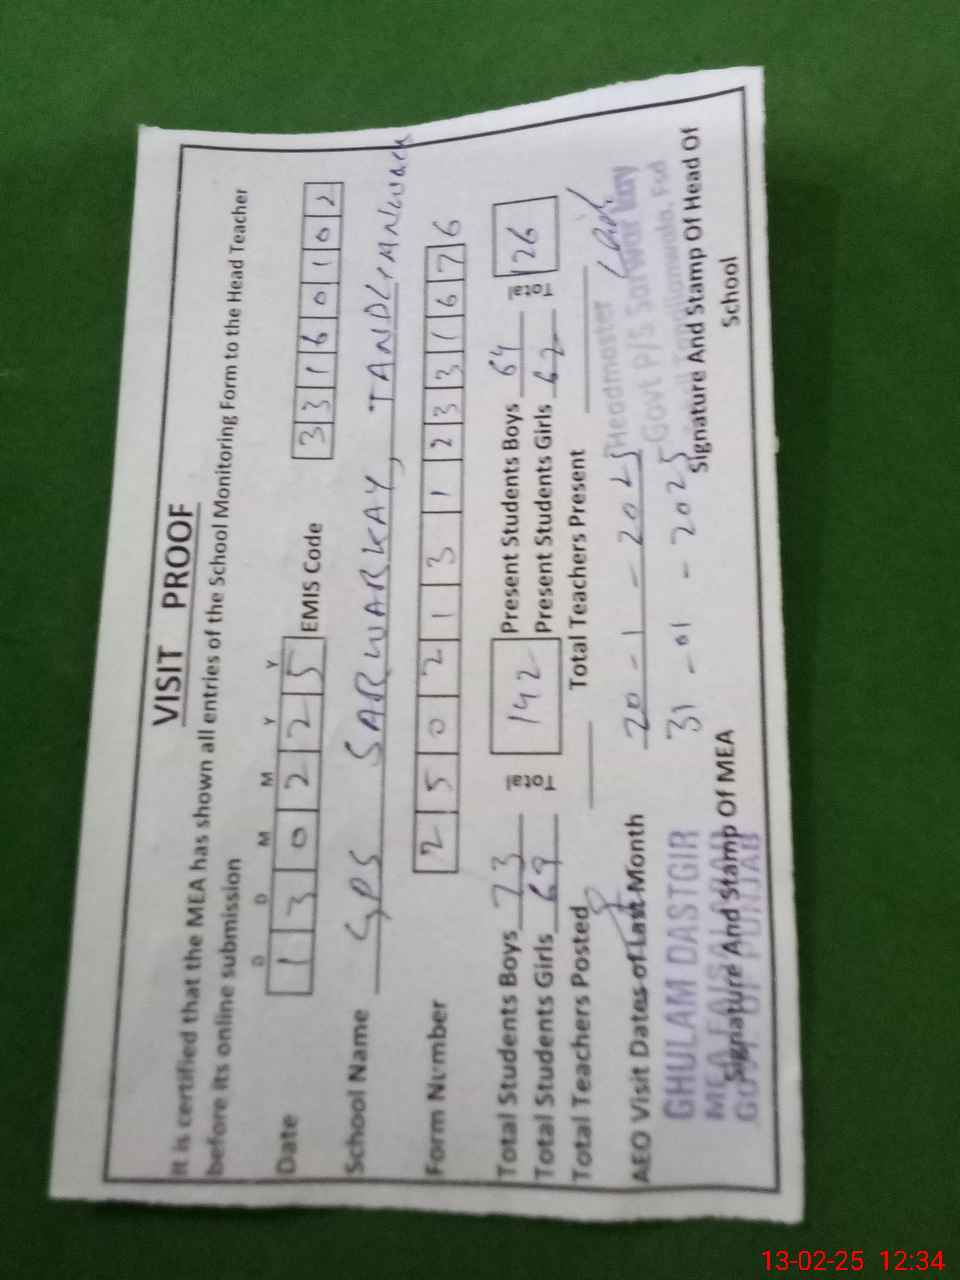 VISIT PROOF
It is certified that the MEA has shown all entries of the School Monitoring Form to the Head Teacher
before its online submission
D D M M Y Y
Date 1 3 0 2 2 5 EMIS Code 3 3 1 6 0 1 0 2
School Name GPS SARWARKAY, TANDLIANWALA
Form Number 2 5 0 2 1 3 1 2 3 3 1 6 7 6
Total Students Boys 73 Total 142 Present Students Boys 64 Total 126
Total Students Girls 69 Present Students Girls 62
Total Teachers Posted Total Teachers Present
AEO Visit Dates of Last Month 20-1-2025
31-01-2025
Headmaster
Govt P/S Sarwar Kay
GHULAM DASTGIR
MEA FAISALABAD
GOVT OF PUNJAB
Signature And Stamp Of MEA
Signature And Stamp Of Head Of
School
13-02-25 12:34